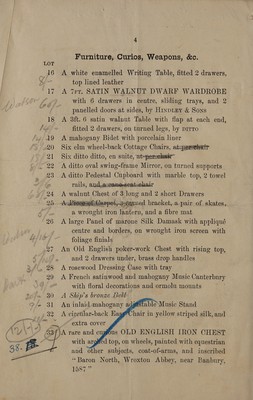 4
Furniture, Curios, Weapons, &c.
LOT
16 A white enamelled Writing Table, fitted 2 drawers,
top lined leather
17 A 7FT. SATIN WALNUT DWARF WARDROBE
with 6 drawers in centre, sliding trays, and 2
panelled doors at sides, by HINDLEY & SONS
18 A 3ft. 6 satin walnut Table with flap at each end,
fitted 2 drawers, on turned legs, by DITTO
19 A mahogany Bidet with porcelain liner
20 Six elm wheel-back Cottage Chairs, at per chair
21 Six ditto ditto, en suite, at per chair
22 A ditto oval swing-frame Mirror, on turned supports
23 A ditto Pedestal Cupboard with marble top, 2 towel
rails, and a cane seat chair
24 A walnut Chest of 3 long and 2 short Drawers
25 A Piece of Carpet, a carved bracket, a pair of skates,
a wrought iron lantern, and a fibre mat
26 A large Panel of maroon Silk Damask with appliqué
centre and borders, on wrought iron screen with
foliage finials
27 An Old English poker-work Chest with rising top,
and 2 drawers under, brass drop handles
28 A rosewood Dressing Case with tray
29 A French satinwood and mahogany Music Canterbury
with floral decorations and ormolu mounts
30 A Ship's bronze Bell
31 An inlaid mahogany adjustable Music Stand
32 A circular-back Easy Chair in yellow striped silk, and
extra cover
33 A rare and curious OLD ENGLISH IRON CHEST
with arched top, on wheels, painted with equestrian
and other subjects, coat-of-arms, and inscribed
"Baron North, Wroxton Abbey, near Banbury,
1587"
38.